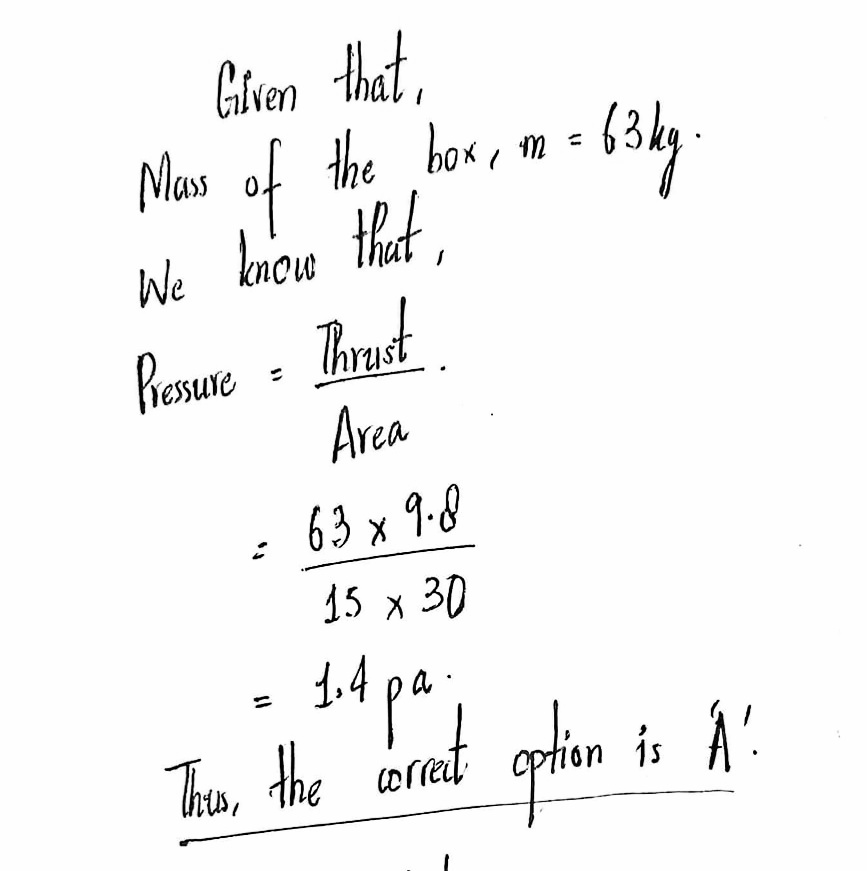 Given that,
Mass of the box, m = 63 kg.
We know that,
Pressure = Thrust / Area.
= 63 x 9.8 / 15 x 30
= 1.4 pa.
Thus, the correct option is 'A'.